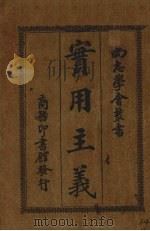 尚志學會叢書
實用主義
商務印書館發行